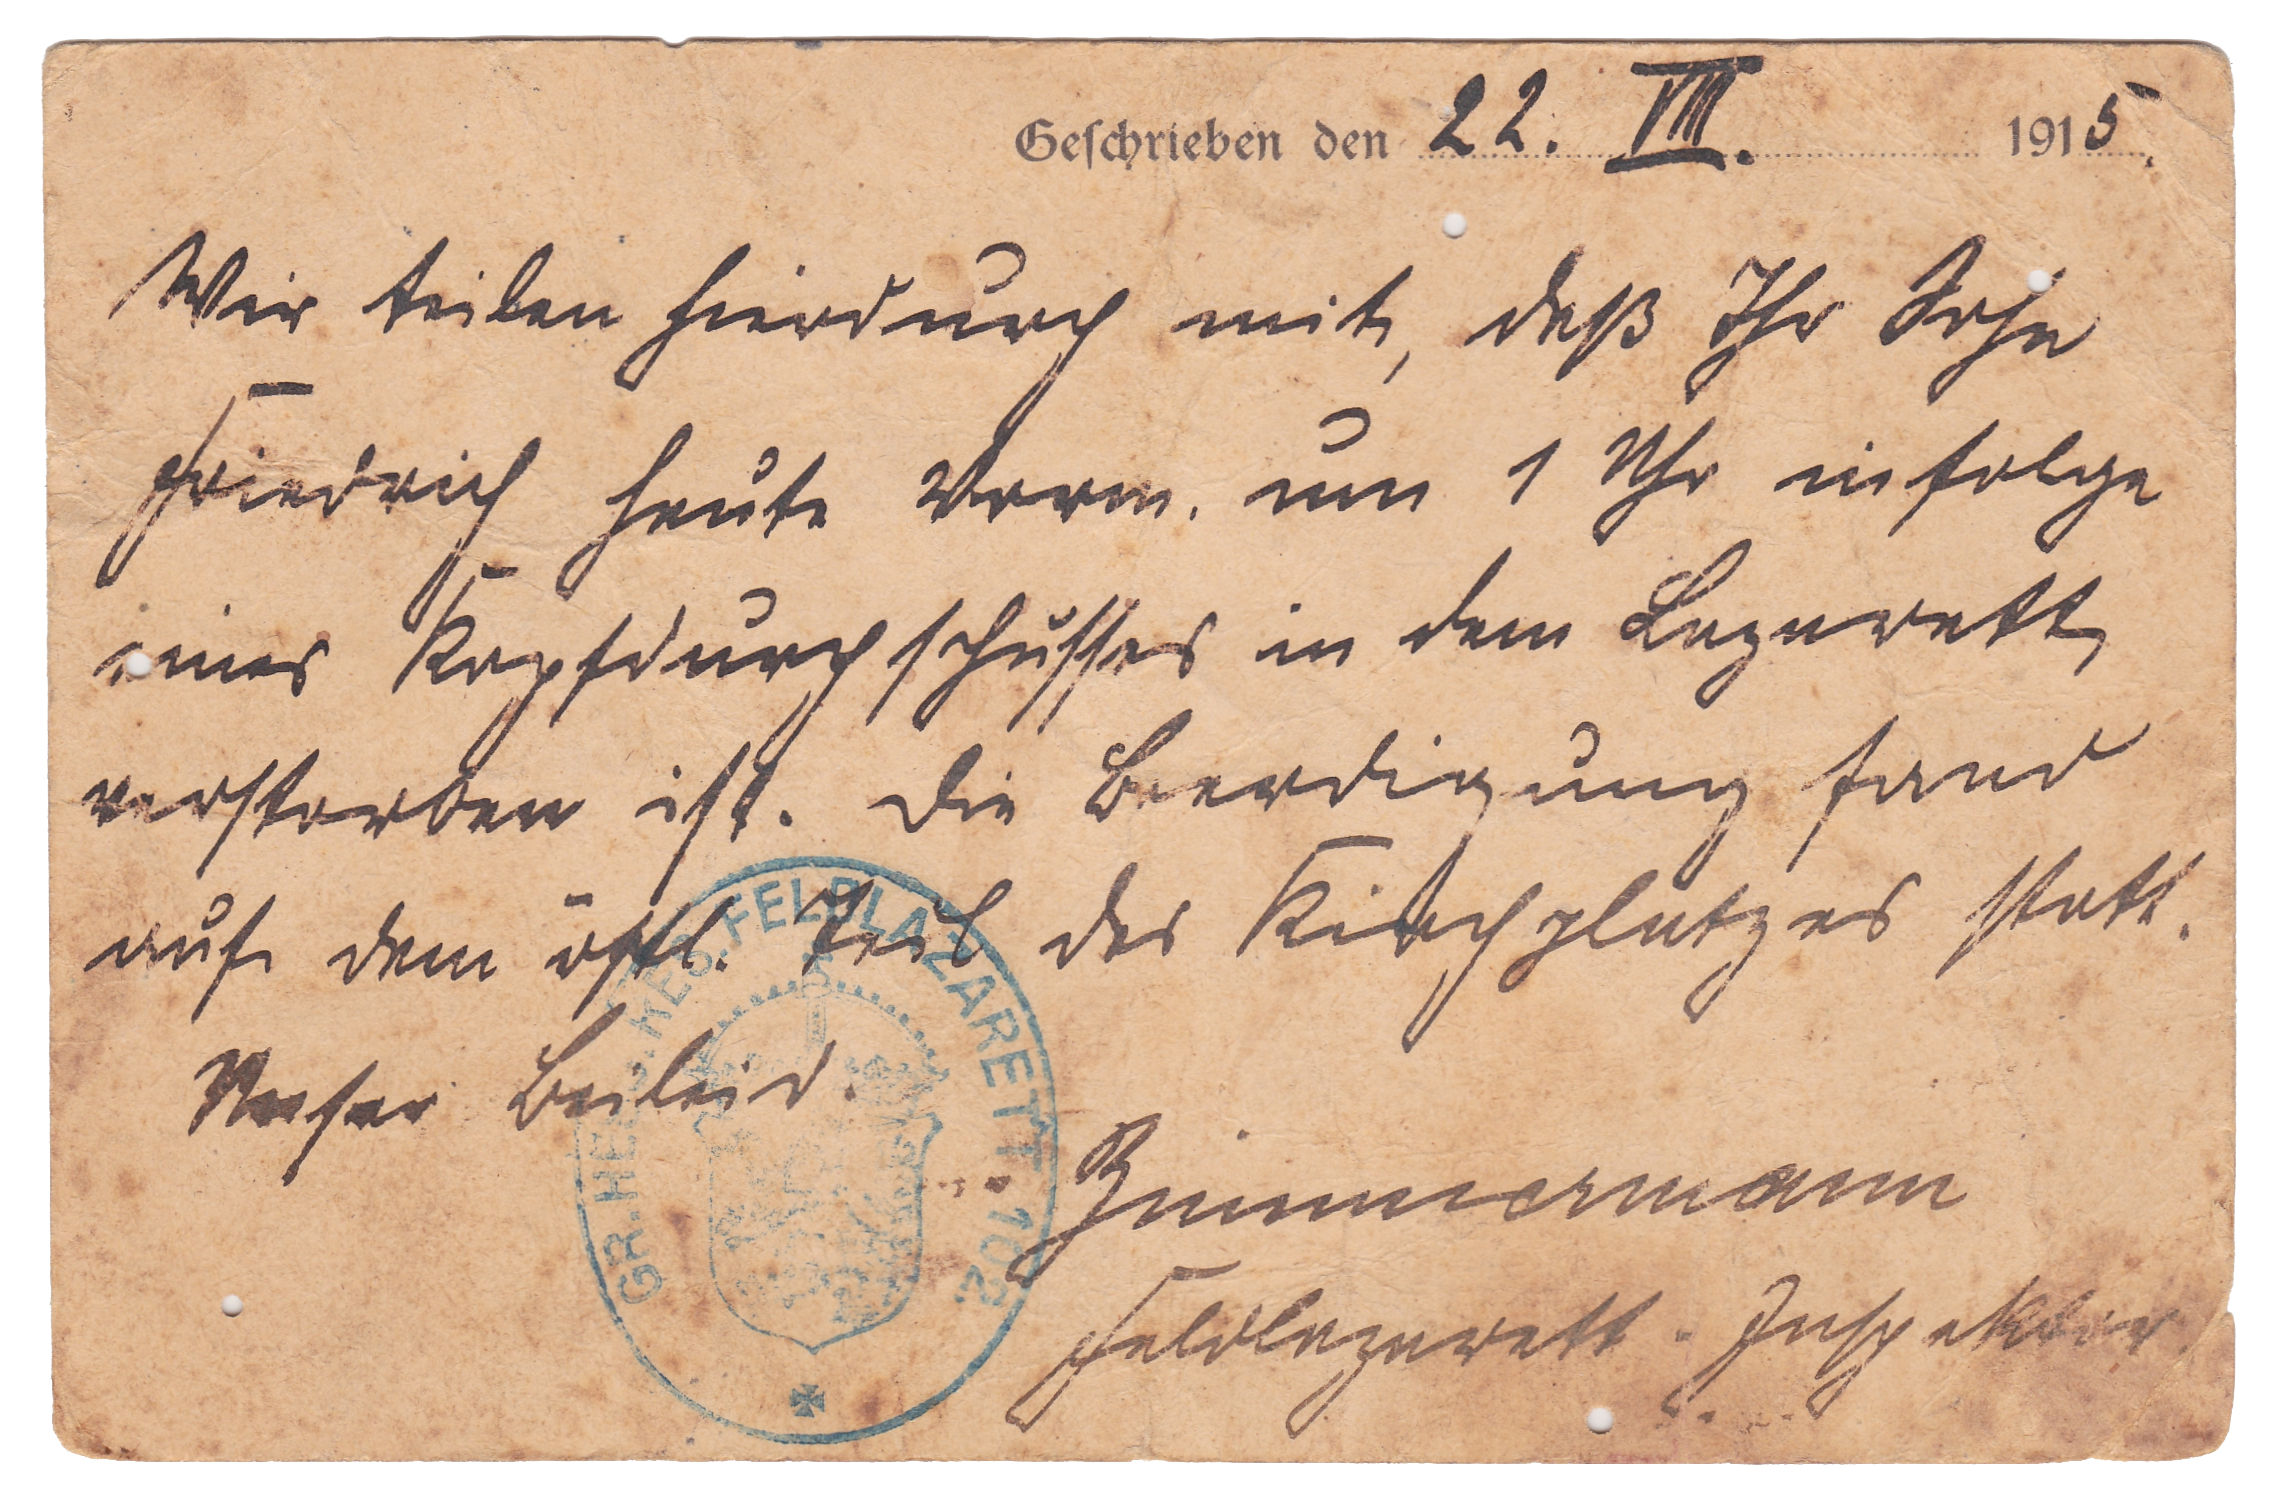 Geschrieben den 22. VII. 1915.
Wir teilen hierdurch mit, daß Ihr Sohn
Friedrich heute Vorm. um 1 Uhr infolge
eines Kopfdurchschusses in dem Lazarett
verstorben ist. Die Beerdigung fand
auf dem östl. Teil des Kirchplatzes statt.
Unser Beileid.
Zimmermann
Feldlazarett-Inspektor.
GR. FELDLAZARETT. 102